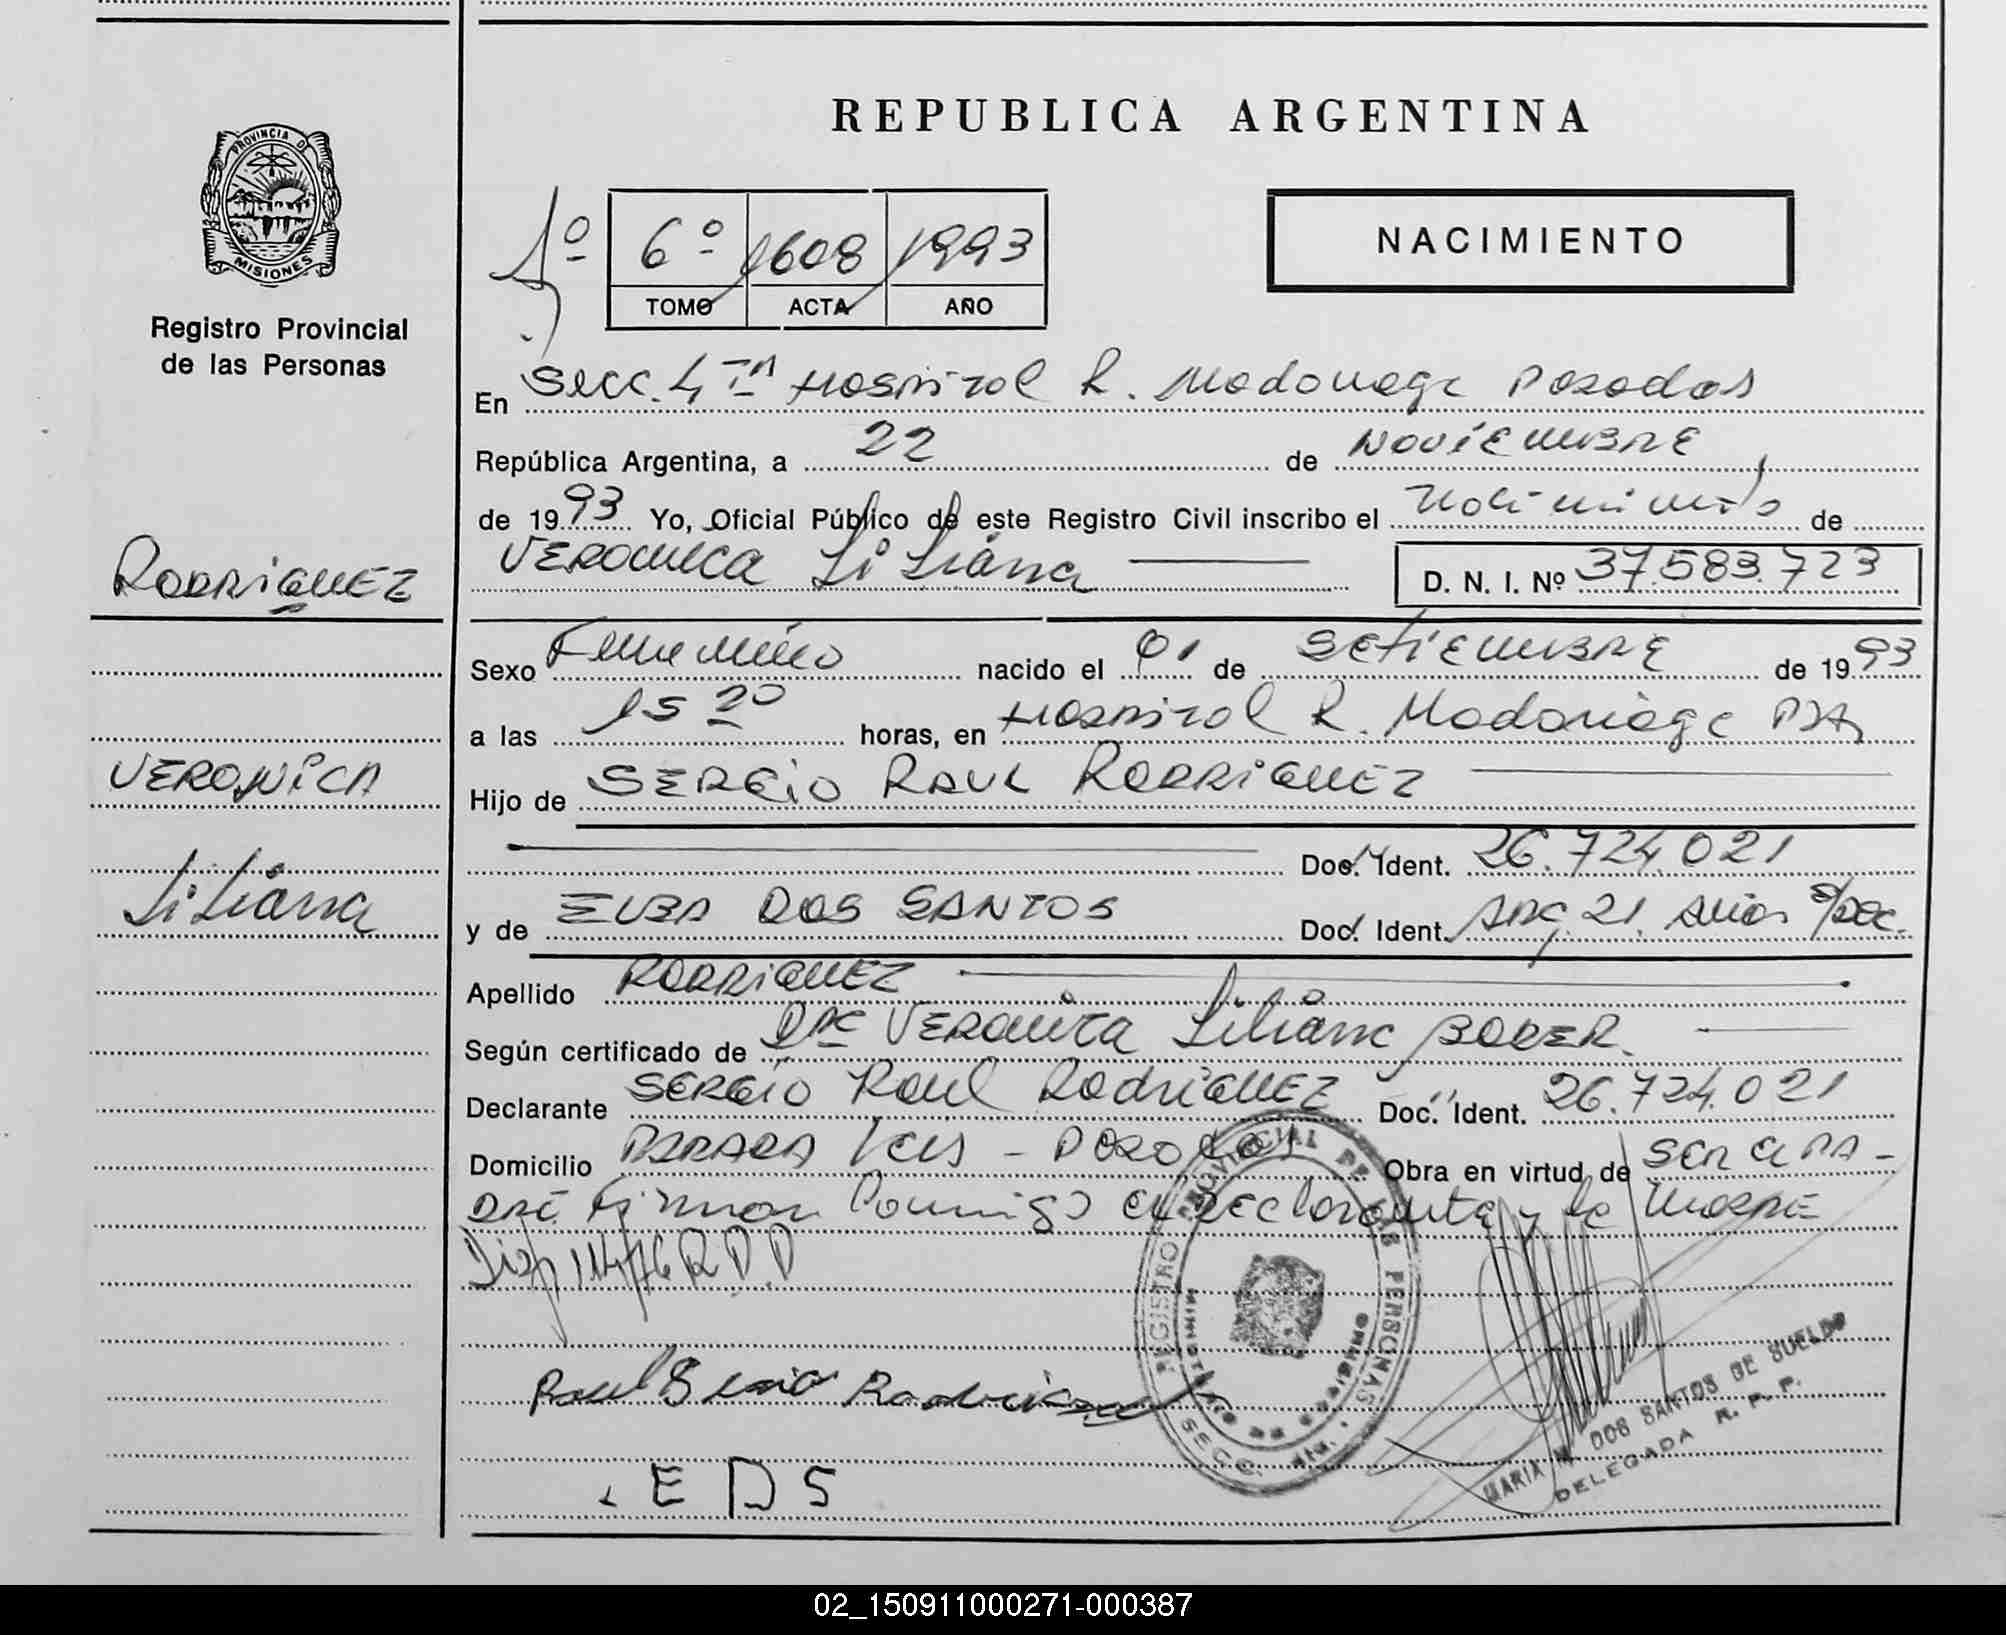 REPUBLICA ARGENTINA
PROVINCIA DE
MISIONES
Registro Provincial
de las Personas
1º 6º 1608 1993
TOMO ACTA AÑO
NACIMIENTO
En Secc. 4TA Hospital R. Madariaga Posadas
República Argentina, a 22 de NOVIEMBRE
de 1993 Yo, Oficial Público de este Registro Civil inscribo el Nacimiento de
VERONICA Liliana D. N. I. Nº 37.583.723
RODRIGUEZ
VERONICA
Liliana
Sexo Femenino nacido el 01 de SETIEMBRE de 1993
a las 15 20 horas, en Hospital R. Madariaga PDAS
Hijo de SERGIO RAUL RODRIGUEZ
Doc. Ident. 26.724.021
y de ELBA DOS SANTOS Doc. Ident. ARG. 21 años s/DOC.
Apellido RODRIGUEZ
Según certificado de DRA VERONICA Liliana BODER.
Declarante SERGIO Raul Rodriguez Doc. Ident. 26.724.021
Domicilio - POSADAS Obra en virtud de SER EL PA-
DRE Firman Conmigo el DECLARANTE y la MADRE
Raul Sergio Rodriguez
EDS
REGISTRO PROVINCIAL DE LAS PERSONAS
SECC.
MARIA DOS SANTOS DE SUELDO
DELEGADA R. P. P.
02_150911000271-000387